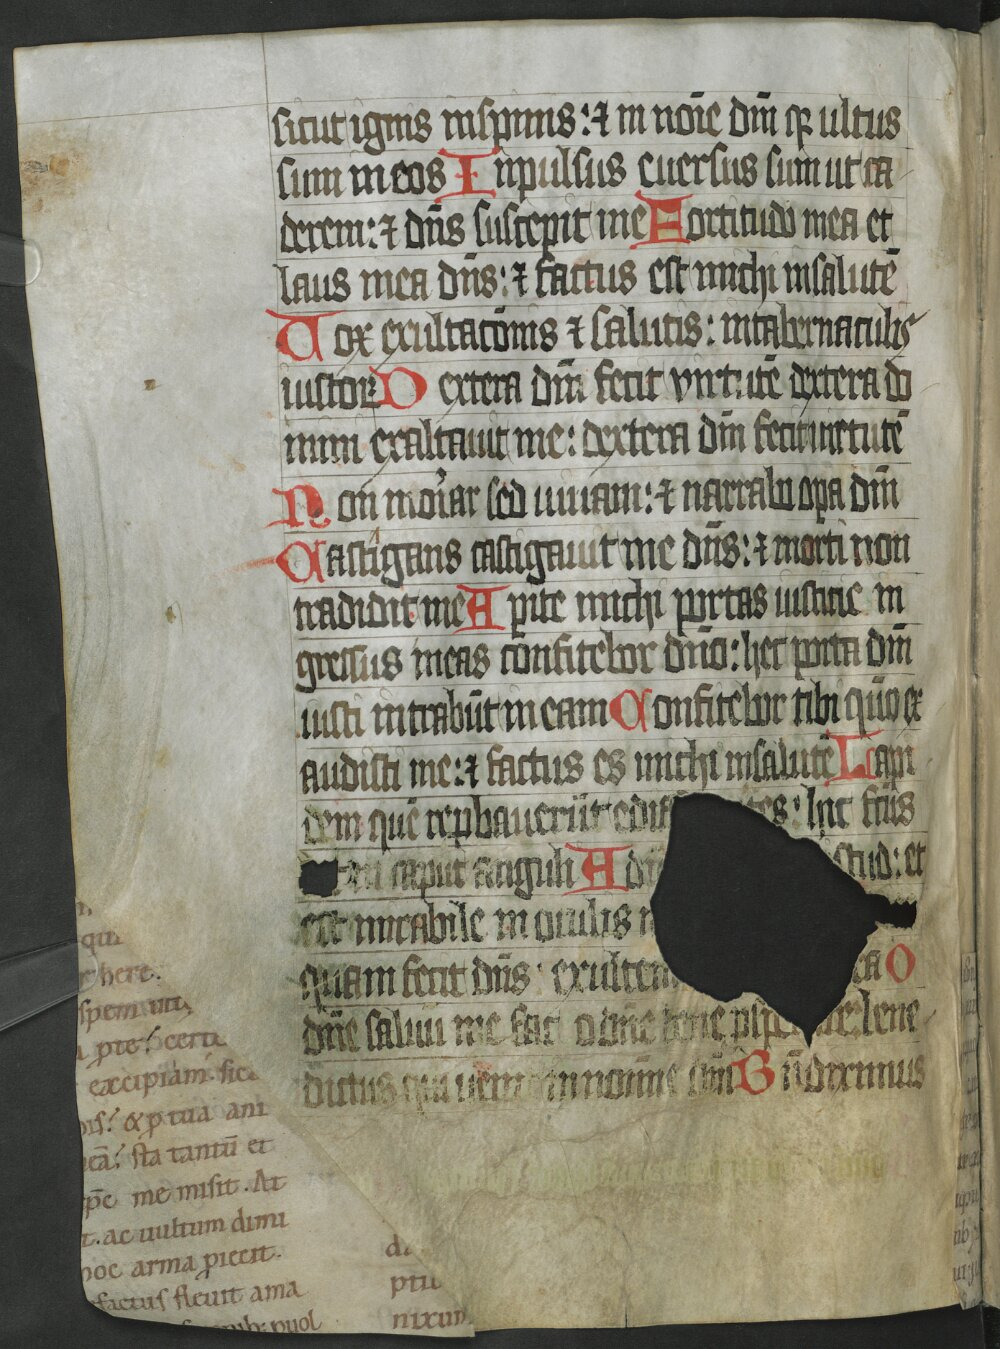 sicut ignis inspinis: ⁊ in noīe dn̄i qꝫ ultus
sum in eos Inpulsus euersus sum ut ca
derem: ⁊ dn̄s suscepit me Fortitudo mea et
laus mea dn̄s: ⁊ factus est michi insalutē
Uox exultacōnis ⁊ salutis: intabernaculis
iustoꝝ Dextera dn̄i fecit virtutē dextera do
mini exaltauit me: dextera dn̄i fecit uirtutē
Non moriar sed uiuam: ⁊ narrabo opa dn̄i
Castigans castigauit me dn̄s: ⁊ morti non
tradidit me Apite michi portas iusticie in
gressus in eas confitebor dn̄o: hec porta dn̄i
iusti intrabūt in eam Confitebor tibi qūo ex
audisti me: ⁊ factus es michi insalutē Lapi
dem quē repbauerūt edifi tes: hic fc̄us
caput anguli A dn̄ stud: et
est mirabile in oculis n
quam fecit dn̄s: exultem ea O
dn̄e saluū me fac o dn̄e bene pspe bene
dictus qui uenit in nomine dn̄i Bn̄diximus
qui
here.
spem
pte: certu
excipiam sic
is: & p tua ani
eā: sta tantū et
me misit. At
t. ac uultum dimi
hoc arma piecit.
factus fleuit ama
puol
da
ptu
nixum